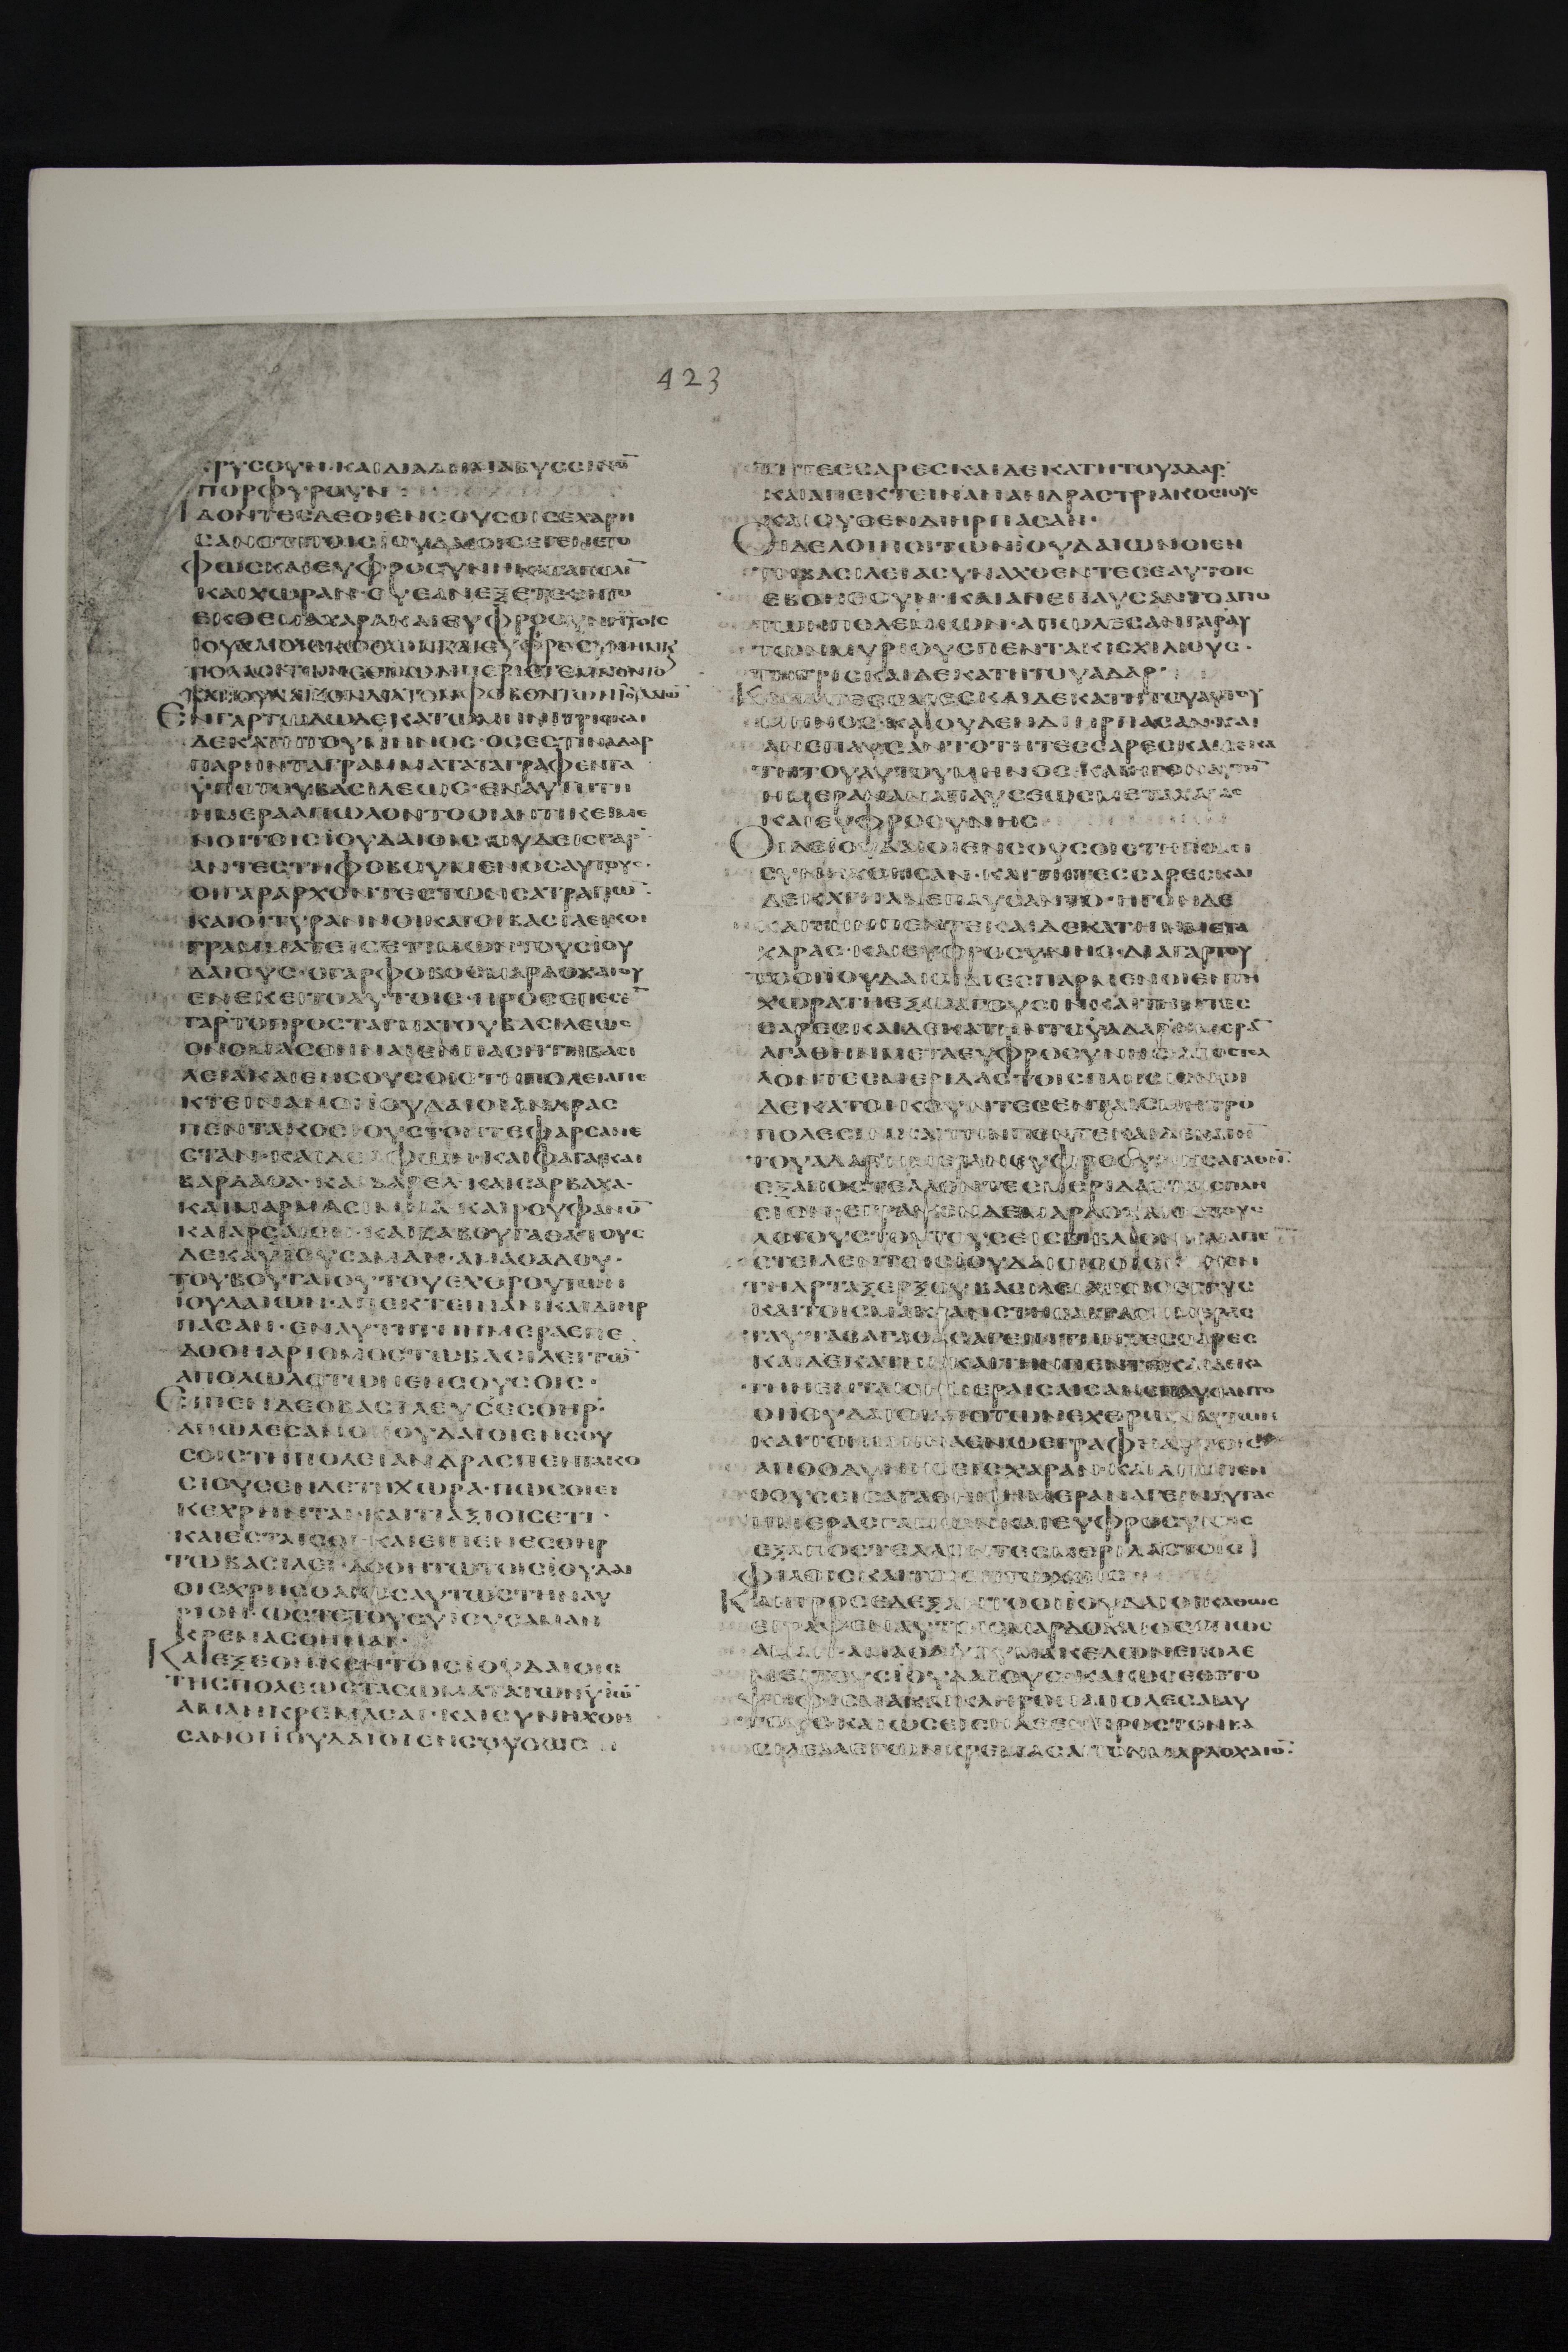 ΧΡΥϹΟΥΝ·ΚΑΙΔΙΑΔΗΜΑΒΥϹϹΙΝΟ̅
ΠΟΡΦΥΡΟΥΝ
ΙΔΟΝΤΕϹΔΕΟΙΕΝϹΟΥϹΟΙϹΕΧΑΡΗ
ϹΑΝΟΤΙΤΟΙϹΙΟΥΔΑΙΟΙϹΕΓΕΝΕΤΟ
ΦΩϹΚΑΙΕΥΦΡΟϹΥΝΗΚΑΤΑΠΟΛΙ̅
ΚΑΙΧΩΡΑΝ·ΟΥΕΑΝΕΞΕΤΕΘΗΤΟ
ΕΚΘΕΜΑΧΑΡΑΚΑΙΕΥΦΡΟϹΥΝΗΤΟΙϹ
ΙΟΥΔΑΙΟΙϹΚΩΘΩΝΚΑΙΕΥΦΡΟϹΥΝΗΚ
ΠΟΛΛΟΙΤΩΝΕΘΝΩΝΠΕΡΙΕΤΕΜΝΟΝΤΟ
ΚΑΙΙΟΥΔΑΙΖΟΝΔΙΑΤΟΝΦΟΒΟΝΤΩΝΙΟΥΔΑΙΩ̅
ΕΝΓΑΡΤΩΔΩΔΕΚΑΤΩΜΗΝΙΤΡΙϹΚΑΙ
ΔΕΚΑΤΗΤΟΥΜΗΝΟϹ·ΟϹΕϹΤΙΝΑΔΑΡ
ΠΑΡΗΝΤΑΓΡΑΜΜΑΤΑΤΑΓΡΑΦΕΝΤΑ
ΫΠΟΤΟΥΒΑϹΙΛΕΩϹ·ΕΝΑΥΤΗΤΗ
ΗΜΕΡΑΑΠΩΛΟΝΤΟΟΙΑΝΤΙΚΕΙΜΕ
ΝΟΙΤΟΙϹΪΟΥΔΑΙΟΙϹ·ΟΥΔΕΙϹΓΑΡ
ΑΝΤΕϹΤΗΦΟΒΟΥΜΕΝΟϹΑΥΤΟΥϹ·
ΟΙΓΑΡΑΡΧΟΝΤΕϹΤΩΝϹΑΤΡΑΠΩ̅
ΚΑΙΟΙΤΥΡΑΝΝΟΙΚΑΙΟΙΒΑϹΙΛΕΙΚΟΙ
ΓΡΑΜΜΑΤΕΙϹΕΤΙΜΩΝΤΟΥϹΪΟΥ
ΔΑΙΟΥϹ·ΟΓΑΡΦΟΒΟϹΜΑΡΔΟΧΑΙΟΥ
ΕΝΕΚΕΙΤΟΑΥΤΟΙϹ·ΠΡΟϹΕΠΕϹΕ̅
ΓΑΡΤΟΠΡΟϹΤΑΓΜΑΤΟΥΒΑϹΙΛΕΩϹ
ΟΝΟΜΑϹΘΗΝΑΙΕΝΠΑϹΗΤΗΒΑϹΙ
ΛΕΙΑΚΑΙΕΝϹΟΥϹΟΙϹΤΗΠΟΛΕΙΑΠΕ
ΚΤΕΙΝΑΝΟΙΪΟΥΔΑΙΟΙΑΝΔΡΑϹ
ΠΕΝΤΑΚΟϹΙΟΥϹΤΟΝΤΕΦΑΡϹΑΝΕ
ϹΤΑΝ·ΚΑΙΔΕΛΦΩΝ·ΚΑΙΦΑΓΑ·ΚΑΙ
ΒΑΡΔΑΘΑ·ΚΑΙΒΑΡΕΛ·ΚΑΙϹΑΡΒΑΧΑ·
ΚΑΙΜΑΡΜΑϹΙΜΝΑ·ΚΑΙΡΟΥΦΑΝΟ̅
ΚΑΙΑΡϹΑΙΟΝ·ΚΑΙΖΑΒΟΥΓΑΘΑΤΟΥϹ
ΔΕΚΑΥΪΟΥϹΑΜΑΝ·ΑΜΑΘΑΔΟΥ·
ΤΟΥΒΟΥΓΑΙΟΥΤΟΥΕΧΘΡΟΥΤΩΝ
ΙΟΥΔΑΙΩΝ·ΑΠΕΚΤΕΙΝΑΝΚΑΙΔΙΗΡ
ΠΑϹΑΝ·ΕΝΑΥΤΗΤΗΗΜΕΡΑΕΠΕ
ΔΟΘΗΑΡΙΘΜΟϹΤΩΒΑϹΙΛΕΙΤΩ̅
ΑΠΟΛΩΛΟΤΩΝΕΝϹΟΥϹΟΙϹ·
ΕΙΠΕΝΔΕΟΒΑϹΙΛΕΥϹΕϹΘΗΡ·
ΑΠΩΛΕϹΑΝΟΙΙΟΥΔΑΙΟΙΕΝϹΟΥ
ϹΟΙϹΤΗΠΟΛΕΙΑΝΔΡΑϹΠΕΝΤΑΚΟ
ϹΙΟΥϹΕΝΔΕΤΗΧΩΡΑ·ΠΩϹΟΙΕΙ
ΚΕΧΡΗΝΤΑΙ·ΚΑΙΤΙΑΞΙΟΙϹΕΤΙ·
ΚΑΙΕϹΤΑΙϹΟΙ·ΚΑΙΕΙΠΕΝΕϹΘΗΡ
ΤΩΒΑϹΙΛΕΙ·ΔΟΘΗΤΩΤΟΙϹΪΟΥΔΑΙ
ΟΙϹΧΡΗϹΘΑΙΩϹΑΥΤΩϹΤΗΝΑΥ
ΡΙΟΝ·ΩϹΤΕΤΟΥϹΥΙΟΥϹΑΜΑΝ
ΚΡΕΜΑϹΘΗΝΑΙ·
ΚΑΙΕΞΕΘΗΚΕΝΤΟΙϹΪΟΥΔΑΙΟΙϹ
ΤΗϹΠΟΛΕΩϹΤΑϹΩΜΑΤΑΤΩΝΥΙΩ̅
ΑΜΑΝΚΡΕΜΑϹΑΙ·ΚΑΙϹΥΝΗΧΘΗ
ϹΑΝΟΙΪΟΥΔΑΙΟΙΕΝϹΟΥϹΟΙϹ
ΤΗΤΕϹϹΑΡΕϹΚΑΙΔΕΚΑΤΗΤΟΥΑΔΑΡ·
ΚΑΙΑΠΕΚΤΕΙΝΑΝΑΝΔΡΑϹΤΡΙΑΚΟϹΙΟΥϹ
ΚΑΙΟΥΘΕΝΔΙΗΡΠΑϹΑΝ·
ΟΙΔΕΛΟΙΠΟΙΤΩΝΪΟΥΔΑΙΩΝΟΙΕΝ
ΤΗΒΑϹΙΛΕΙΑϹΥΝΑΧΘΕΝΤΕϹΕΑΥΤΟΙϹ
ΕΒΟΗΘΟΥΝ·ΚΑΙΑΝΕΠΑΥϹΑΝΤΟΑΠΟ
ΤΩΝΠΟΛΕΜΙΩΝ·ΑΠΩΛΕϹΑΝΓΑΡΑΥ
ΤΩΝΜΥΡΙΟΥϹΠΕΝΤΑΚΙϹΧΙΛΙΟΥϹ·
ΤΗΤΡΙϹΚΑΙΔΕΚΑΤΗΤΟΥΑΔΑΡ·
ΤΕϹϹΑΡΕϹΚΑΙΔΕΚΑΤΗΤΟΥΑΥΤΟΥ
ΜΗΝΟϹ·ΚΑΙΟΥΔΕΝΔΙΗΡΠΑϹΑΝ·ΚΑΙ
ΑΝΕΠΑΥϹΑΝΤΟΤΗΤΕϹϹΑΡΕϹΚΑΙΔΕΚΑ
ΤΗΤΟΥΑΥΤΟΥΜΗΝΟϹ·ΚΑΙΗΓΟΝΑΥΤΗ̅
ΗΜΕΡΑΝΑΝΑΠΑΥϹΕΩϹΜΕΤΑΧΑΡΑϹ
ΚΑΙΕΥΦΡΟϹΥΝΗϹ
ΟΙΔΕΪΟΥΔΑΙΟΙΕΝϹΟΥϹΟΙϹΤΗΠΟΛΕΙ
ϹΥΝΗΧΘΗϹΑΝ·ΚΑΙΤΗΤΕϹϹΑΡΕϹΚΑΙ
ΔΕΚΑΤΗΑΝΕΠΑΥϹΑΝΤΟ·ΗΓΟΝΔΕ
ΚΑΙΤΗΝΠΕΝΤΕΚΑΙΔΕΚΑΤΗΝΜΕΤΑ
ΧΑΡΑϹ·ΚΑΙΕΥΦΡΟϹΥΝΗϹ·ΔΙΑΓΑΡΤΟΥ
ΤΟΟΙΪΟΥΔΑΙΟΙΔΙΕϹΠΑΡΜΕΝΟΙΕΝΤΗ
ΧΩΡΑΤΗΕΞΩΑΓΟΥϹΙΝΚΑΙΤΗΝΤΕϹ
ϹΑΡΕϹΚΑΙΔΕΚΑΤΗΝΤΟΥΑΔΑΡΗΜΕΡΑ̅
ΑΓΑΘΗΝΜΕΤΑΕΥΦΡΟϹΥΝΗϹ·ΑΠΟϹΤΕΛ
ΛΟΝΤΕϹΜΕΡΙΔΑϹΤΟΙϹΠΛΗϹΙΟΝΟΙ
ΔΕΚΑΤΟΙΚΟΥΝΤΕϹΕΝΤΑΙϹΜΗΤΡΟ
ΠΟΛΕϹΙΝΚΑΙΤΗΝΠΕΝΤΕΚΑΙΔΕΚΑΤΗ̅
ΤΟΥΑΔΑΡ
ΕΞΑΠΟϹΤΕΛΛΟΝΤΕϹΜΕΡΙΔΑϹΤΟΙϹΠΛΗ
ϹΙΟΝ·ΕΓΡΑΨΕΝΔΕΜΑΡΔΟΧΑΙΟϹΤΟΥϹ
ΛΟΓΟΥϹΤΟΥΤΟΥϹΕΙϹΒΙΒΛΙΟΝΚΑΙΑΠΕ
ϹΤΕΙΛΕΝΤΟΙϹΪΟΥΔΑΙΟΙϹ
ΤΗΑΡΤΑΞΕΡΞΟΥΒΑϹΙΛΕΙΑ
ΚΑΙΤΟΙϹΜΑΚΡΑΝ
ΚΑΙΔΕΚΑΤΗΝΚΑΙΤΗΝΠΕΝΤΕΚΑΙΔΕΚΑ
ΤΗΝΕΝΤΑΙϹΗΜΕΡΑΙϹΑΙϹΑΝΕΠΑΥϹΑΝΤΟ
ΟΙΪΟΥΔΑΙΟΙΑΠΟΤΩΝΕΧΘΡΩΝΑΥΤΩΝ
ΚΑΙΤΟΝΜΗΝΑΕΝΩΕΓΡΑΦΗΑΥΤΟΙϹ
ΑΠΟΘΑΥΝΗϹΕΙϹΧΑΡΑΝ·ΚΑΙΑΠΟΠΕΝ
ΘΟΥϹΕΙϹΑΓΑΘΗΝΗΜΕΡΑΝΑΓΕΙΝ
ΗΜΕΡΑϹΓΑΜΩΝΚΑΙΕΥΦΡΟϹΥΝΗϹ
ΕΞΑΠΟϹΤΕΛΛΟΝΤΕϹΜΕΡΙΔΑϹΤΟΙϹ
ΦΙΛΟΙϹΚΑΙΤΟΙϹΠΤΩΧΟΙϹ
ΚΑΙΠΡΟϹΕΔΕΞΑΝΤΟΟΙΪΟΥΔΑΙΟΙΚΑΘΩϹ
ΕΓΡΑΨΕΝΑΥΤΟΙϹΜΑΡΔΟΧΑΙΟϹΠΩϹ
ΑΜΑΝ·ΑΜΑΘΑΔΟΥΟΜΑΚΕΔΩΝΕΠΟΛΕ
ΜΕΙΤΟΥϹΪΟΥΔΑΙΟΥϹ·ΚΑΙΩϹΕΘΕΤΟ
ΨΗΦΙϹΜΑΚΑΙΚΛΗΡΟΝ
ΤΟΥϹ·ΚΑΙΩϹΕΙϹΗΛΘΕΝΠΡΟϹΤΟΝΒΑ
ϹΙΛΕΑΛΕΓΩΝΚΡΕΜΑϹΑΙΤΟΝΜΑΡΔΟΧΑΙΟ̅·
423